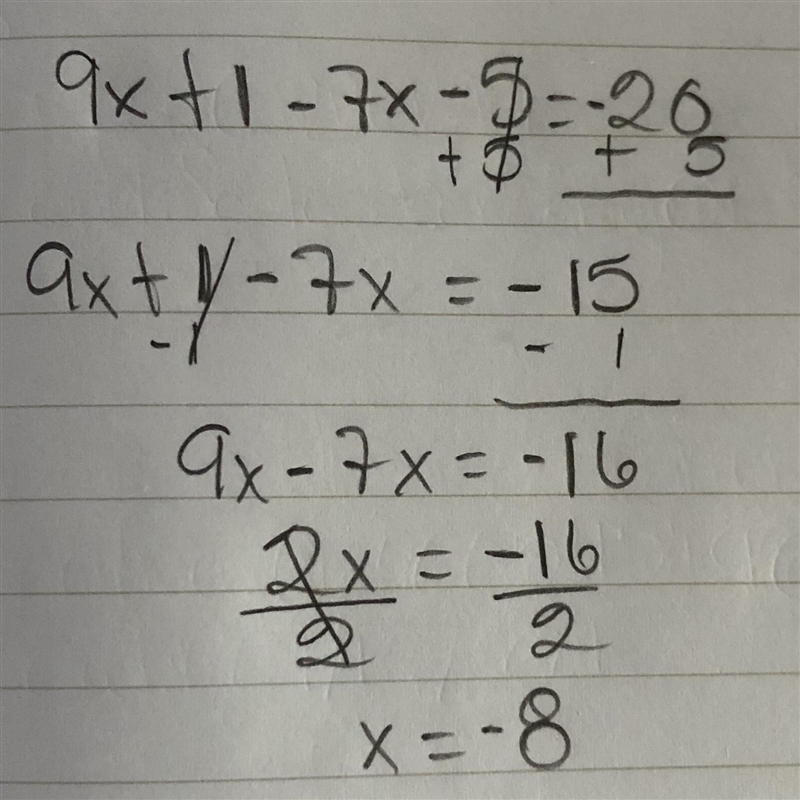 9x + 1 - 7x - 5 = -20
+ 5 + 5
9x + 1 - 7x = -15
- 1 - 1
9x - 7x = -16
2x = -16
2 2
x = -8